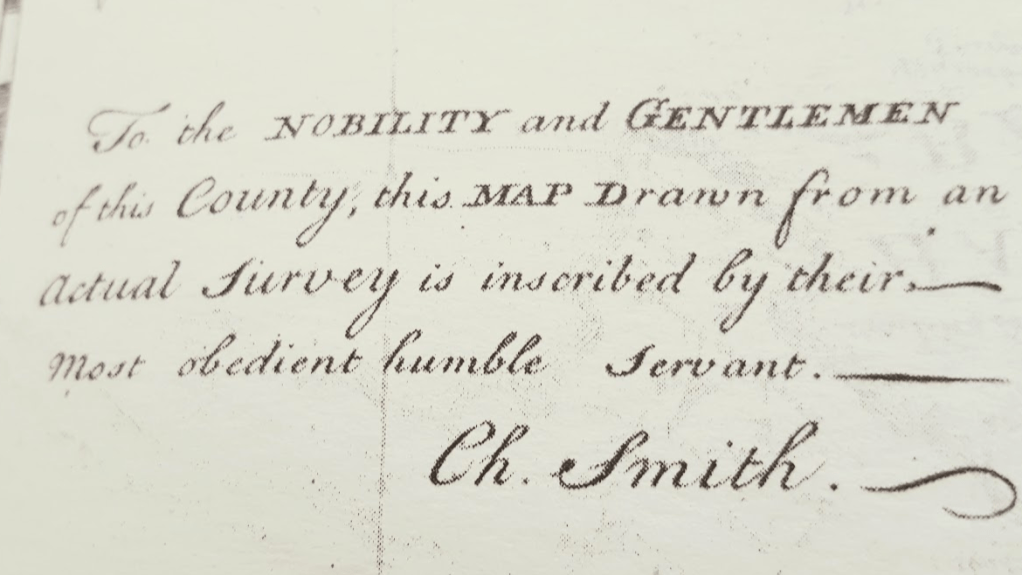 To the NOBILITY and GENTLEMEN
of this County, this MAP Drawn from an
Actual Survey is inscribed by their,
Most obedient humble Servant.
Ch. Smith.